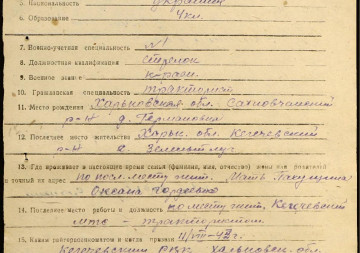 5. Национальность украинец
6. Образование 4 кл.
7. Военно-учетная специальность №1
8. Должностная квалификация стрелок
9. Военное звание кр-ец
10. Гражданская специальность тракторист
11. Место рождения Харьковская обл. Сахновчанский
р-н д.
12. Последнее место жительства Харьк. обл. Кегечевский
р-н с. Зеленый луг
13. Где проживает в настоящее время семья (фамилия, имя, отчество) жены или родителей
и точный их адрес по посл. месту жит. Мать
Оксана Гордеевна
14. Последнее место работы и должность по месту жит. Кегечевский
мтс - трактористом.
15. Каким райвоенкоматом и когда призван 11/VIII-43г.
Кегечевским РВК Харьковск. обл.